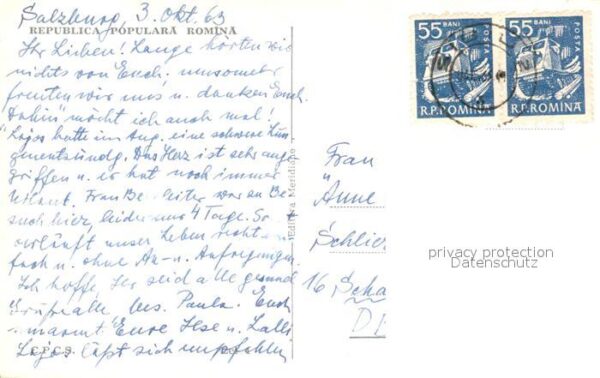 Salzburg, 3. Okt. 63
REPUBLICA POPULARĂ ROMÎNĂ
Ihr Lieben! Lange hörten wir
nichts von Euch. umsomehr
freuten wir uns u. danken Euch.
"Dahin" möcht ich auch mal!
Lajos hatte im Aug. eine schwere Lun
gentzündg. Das Herz ist sehr ange
griffen u. er hat noch immer
Urlaub. Frau Be- leiter war an Be
such hier, leider nur 4 Tage. So
verläuft unser Leben recht
fach u. ohne An- u. Aufregungen.
Ich hoffe, Ihr seid alle gesund
Grüße alle bes. Paula. Euch
marmt Eure Ilse u. Lalli
Lajos läßt sich empfehlen
C.P.C.S.
Editura Meridiane
55 BANI
POSTA
R.P.ROMINA
55 BANI
POSTA
R.P.ROMINA
Frau
u
Anne
Schlie
16 Scha
D
privacy protection
Datenschutz